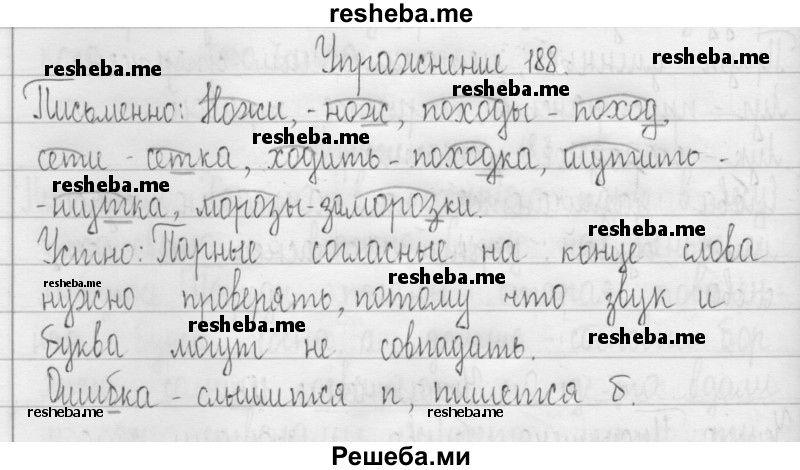 resheba.me
Упражнение 188.
resheba.me
resheba.me
Письменно: Ножи, - нож, походы - поход,
resheba.me
resheba.me
сети - сетка, ходить - походка, шутить -
resheba.me
- шутка, морозы - заморозки.
resheba.me
Устно: Парные согласные на конце слова
resheba.me
resheba.me
нужно проверять, потому что звук и
resheba.me
resheba.me
буква могут не совпадать.
Ошибка - слышится п, пишется б.
resheba.me
resheba.me
Решеба.ми